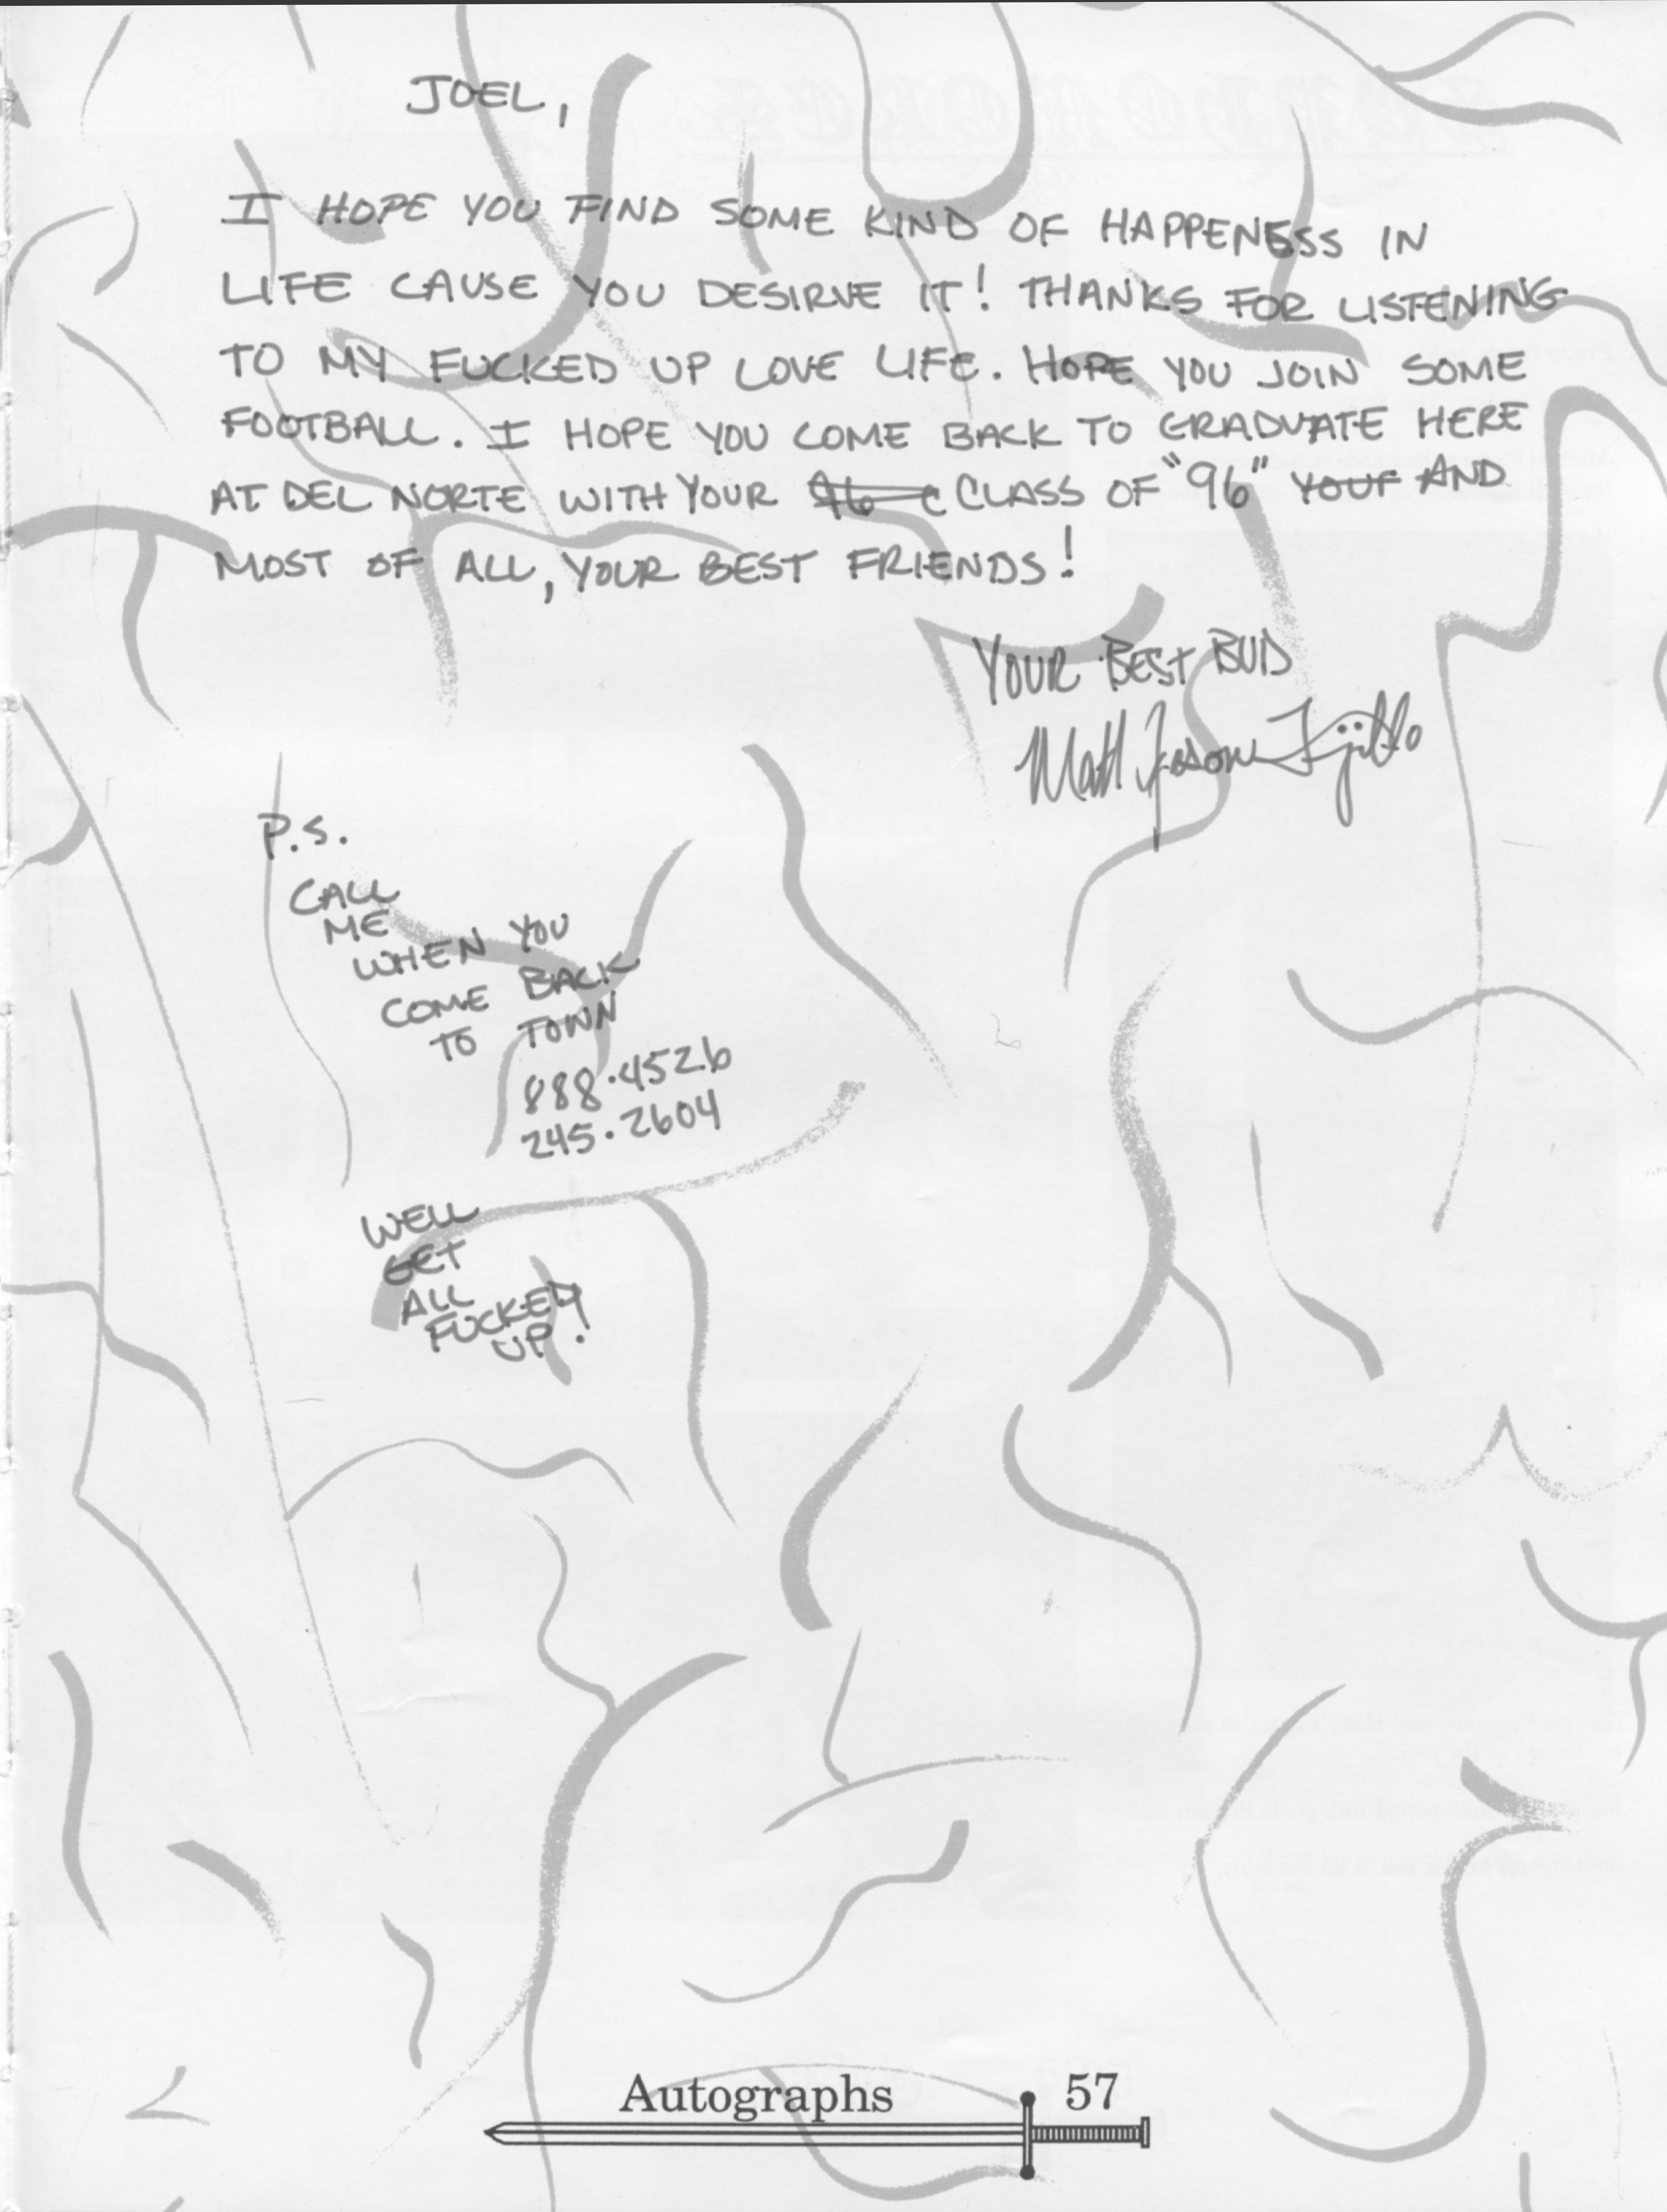 JOEL,
I HOPE YOU FIND SOME KIND OF HAPPENESS IN
LIFE CAUSE YOU DESIRVE IT! THANKS FOR LISTENING
TO MY FUCKED UP LOVE LIFE. HOPE YOU JOIN SOME
FOOTBALL. I HOPE YOU COME BACK TO GRADUATE HERE
AT DEL NORTE WITH YOUR 96 C CLASS OF "96" YOUF AND
MOST OF ALL, YOUR BEST FRIENDS!
YOUR BEST BUD
Matt Jason
P.S.
CALL
ME
WHEN YOU
COME BACK
TO TOWN
888·4526
245·2604
WELL
GET
ALL
FUCKED
UP!
Autographs 57